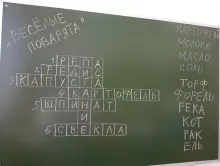 "ВЕСЁЛЫЕ
ПОВАРЯТА"
1 РЕПА
2 РЕДИС
3 КАПУСТА
4 КАРТОФЕЛЬ
5 ШПИНАТ
И
6 СВЕКЛА
КАРТОФЕЛЬ
МОЛОКО
МАСЛО
СОЛЬ
ТОРФ
ФОРЕЛЬ
РЕКА
КОТ
РАК
ЕЛЬ